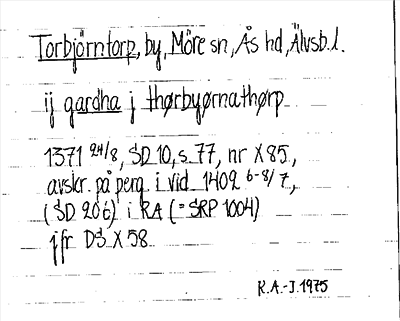 Torbjörntorp, by, Möre sn, Ås hd, Älvsb.l.
ij gardha j thørbyørnathørp
1371 24/8, SD 10, s. 77, nr X 85,
avskr. på perg. i vid. 1402 6-8/7,
(SD 206) i RA (=SRP 1004)
jfr DS X 58
K.A.-J. 1975